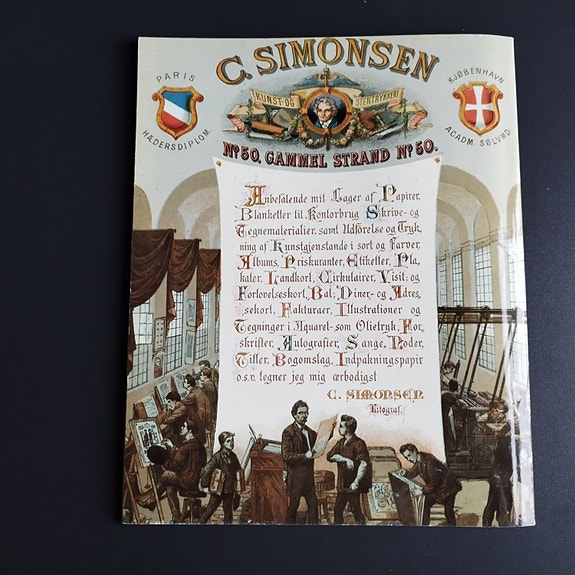 C. SIMONSEN
PARIS
HÆDERSDIPLOM
KUNST-OG STENTRYKKERI
KJØBENHAVN
ACADM. SØLVMD
No. 50. GAMMEL STRAND No. 50.
Anbefalende mit Lager af Papirer,
Blanketter til Kontorbrug, Skrive- og
Tegnematerialier, samt Udførelse og Tryk,
ning af Kunstgjenstande i sort og Farver,
Albums, Priskuranter, Etiketter, Pla,
kater, Landkort, Cirkulairer, Visit- og
Forlovelseskort, Bal, Diner- og Adres,
sekort, Fakturaer, Illustrationer og
Tegninger i Aquarel- som Olietryk, For,
skrifter, Autografier, Sange, Noder,
Titler, Bogomslag, Indpakningspapir
o.s.v. tegner jeg mig ærbødigst
C. SIMONSEN
Litograf.